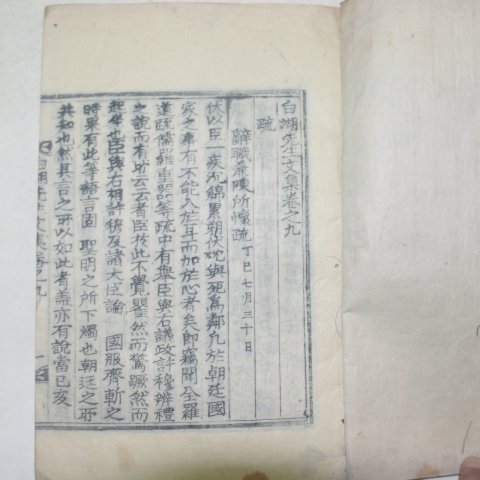 白湖先生文集卷之九
疏
辭職兼陳所懷疏 丁巳七月三十日
伏以臣一疾沉綿累朔伏枕與死爲鄰凡於朝廷國
家之事有不能入於耳而加於心者矣卽竊聞全羅
道疏儒羅重器等疏中有與臣與右議政許穆辨禮
之說而有所云云者臣於此不覺瞿然而驚蹴然而
起坐也臣與右相許積及諸大臣論 國服齊斬之
時果有此等語言固 聖明之所下燭也朝廷之所
共知也然其言之所以如此者盖亦有說當己亥
白湖先生文集卷之九 一